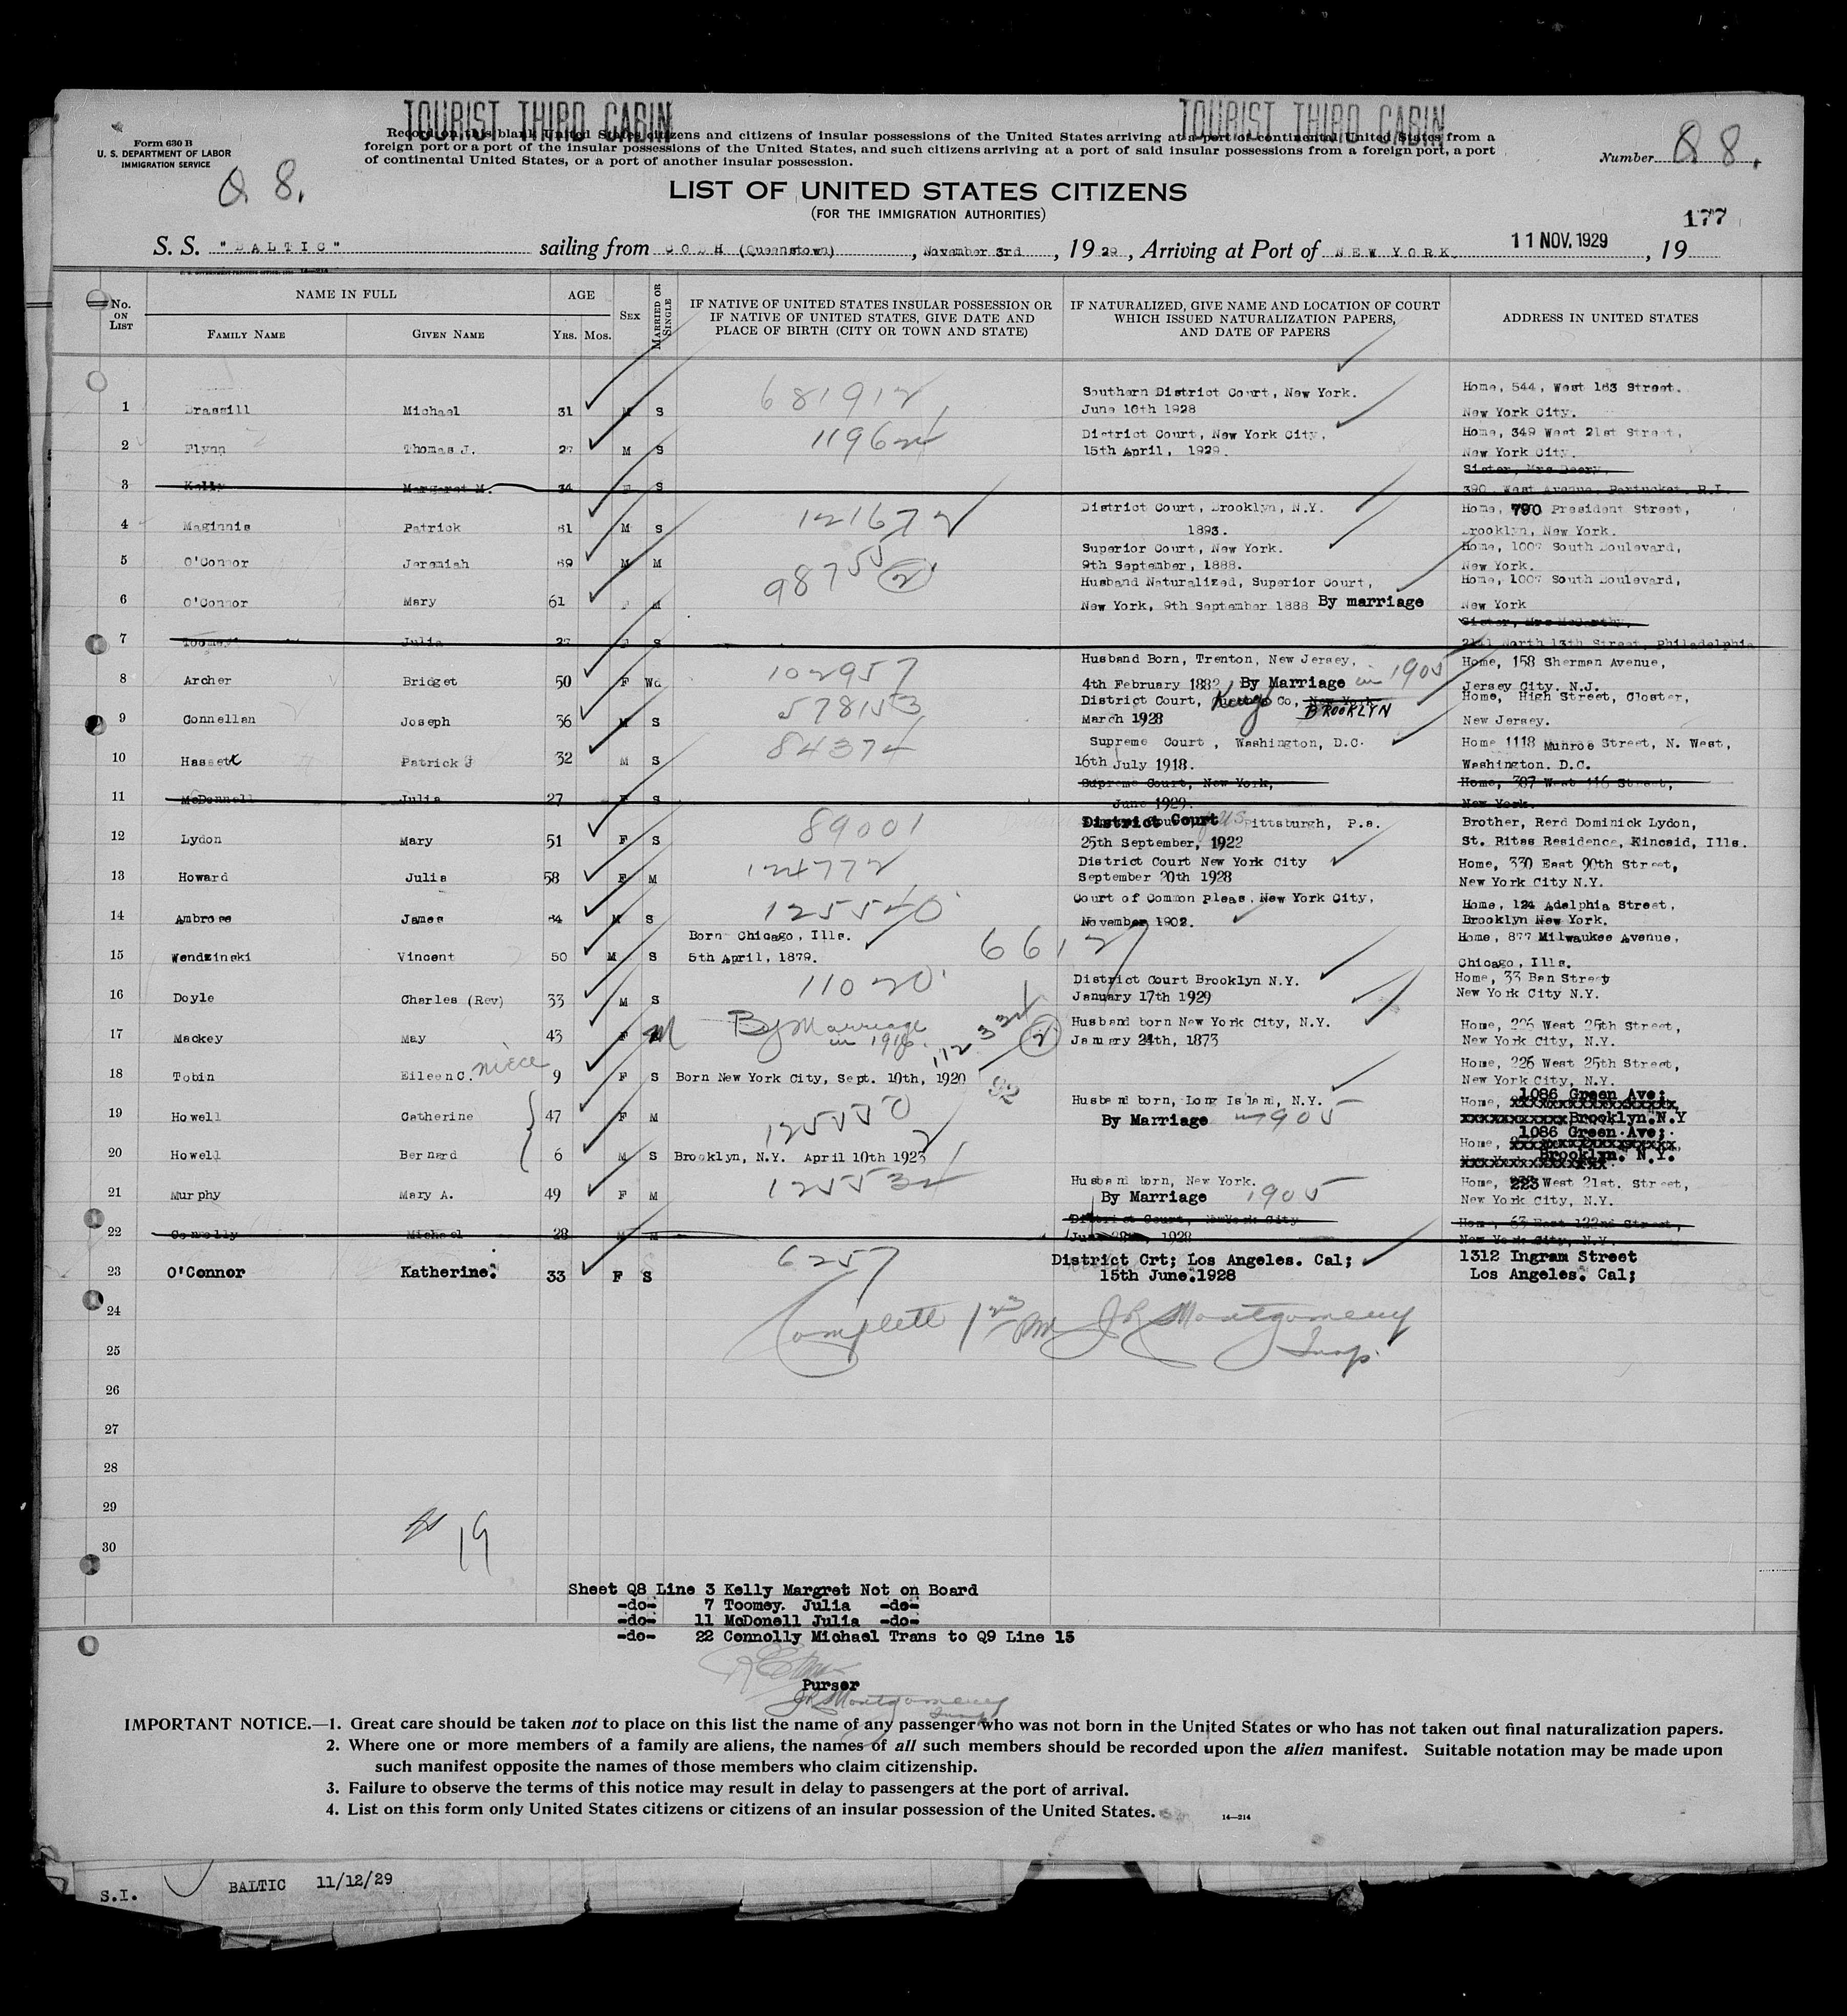 TOURIST THIRD CABIN TOURIST THIRD CABIN
Form 630 B
U. S. DEPARTMENT OF LABOR
IMMIGRATION SERVICE
Q 8.
Record on this blank United States citizens and citizens of insular possessions of the United States arriving at a port of continental United States from a
foreign port or a port of the insular possessions of the United States, and such citizens arriving at a port of said insular possessions from a foreign port, a port
of continental United States, or a port of another insular possession.
Number Q 8.
LIST OF UNITED STATES CITIZENS
(FOR THE IMMIGRATION AUTHORITIES)
177
S. S. "BALTIC" sailing from COBH (Queenstown), November 3rd, 1929, Arriving at Port of NEW YORK 11 NOV. 1929, 19
No. ON LIST
NAME IN FULL
FAMILY NAME GIVEN NAME
AGE
YRS. MOS.
SEX
MARRIED OR SINGLE
IF NATIVE OF UNITED STATES INSULAR POSSESSION OR
IF NATIVE OF UNITED STATES, GIVE DATE AND
PLACE OF BIRTH (CITY OR TOWN AND STATE)
IF NATURALIZED, GIVE NAME AND LOCATION OF COURT
WHICH ISSUED NATURALIZATION PAPERS,
AND DATE OF PAPERS
ADDRESS IN UNITED STATES
681912 Southern District Court, New York. Home, 544, West 163 Street.
1 Brassill Michael 31 M S June 10th 1928 New York City.
District Court, New York City. Home, 349 West 21st Street,
2 Flynn Thomas J. 27 M S 15th April, 1929. New York City.
Sister, Mrs Deery,
3 Kelly Margaret M. 34 F S 390 West Avenue, Partucket R.I.
District Court, Brooklyn, N.Y. Home, 790 President Street,
4 Maginnis Patrick 61 M S 121672 1893. Brooklyn, New York.
Superior Court, New York. Home, 1007 South Boulevard,
5 O'Connor Jeremiah 69 M M 98755 (2) 9th September, 1888. New York.
Husband Naturalized, Superior Court, Home, 1007 South Boulevard,
6 O'Connor Mary 61 F M New York, 9th September 1888 By marriage New York
Sister, Mrs McCarthy,
7 Toomey Julia 27 F S North 13th Street, Philadelphia
102957 Husband Born, Trenton, New Jersey, Home, 158 Sherman Avenue,
8 Archer Bridget 50 F Wd 4th February 1882 By Marriage in 1905 Jersey City. N.J.
578153 District Court, Kings Co, New York Home, High Street, Closter,
9 Connellan Joseph 36 M S March 1928 BROOKLYN New Jersey.
Supreme Court, Washington, D.C. Home 1118 Munroe Street, N. West,
10 Hassett Patrick J 32 M S 16th July 1918. Washington. D.C.
Supreme Court, New York, Home, 307 West 116 Street,
11 McDonnell Julia 27 F S June 1929. New York.
89001 District Court of US Pittsburgh, P.a. Brother, Rerd Dominick Lydon,
12 Lydon Mary 51 F S 25th September, 1922 St. Ritas Residence, Kincaid, Ills.
124772 District Court New York City Home, 330 East 90th Street,
13 Howard Julia 58 F M September 20th 1928 New York City N.Y.
Court of Common Pleas. New York City, Home, 124 Adelphia Street,
14 Ambrose James 64 M S 125540 November 1902. Brooklyn New York.
Born Chicago, Ills. 6612 Home, 877 Milwaukee Avenue,
15 Wendzinski Vincent 50 M S 5th April, 1879. Chicago, Ills.
11020 District Court Brooklyn N.Y. Home, 33 Ban Street
16 Doyle Charles (Rev) 33 M S January 17th 1929 New York City N.Y.
Husband born New York City, N.Y. Home, 226 West 25th Street,
17 Mackey May 43 F M By Marriage in 1916. (2) January 24th, 1873 New York City, N.Y.
Home, 226 West 25th Street,
18 Tobin Eileen C. niece 9 F S Born New York City, Sept. 10th, 1920 New York City, N.Y.
Husband born, Long Island, N.Y. Home, 1086 Green Ave;
19 Howell Catherine 47 F M By Marriage in 1905 Brooklyn N.Y
Home, 1086 Green Ave;
20 Howell Bernard 6 M S Brooklyn, N.Y. April 10th 1923 Brooklyn. N.Y.
Husband born, New York. Home, 223 West 21st. Street,
21 Murphy Mary A. 49 F M By Marriage 1905 New York City, N.Y.
District Court, New York City Home, 63 East 122nd Street,
22 Connolly Michael 28 M M 1928 New York City, N.Y.
6257 District Crt; Los Angeles. Cal; 1312 Ingram Street
23 O'Connor Katherine. 33 F S 15th June.1928 Los Angeles. Cal;
24
Complete JR Montgomery
25 Insp.
26
27
28
29
30
19
Sheet Q8 Line 3 Kelly Margret Not on Board
-do- 7 Toomey. Julia -do-
-do- 11 McDonell Julia -do-
-do- 22 Connolly Michael Trans to Q9 Line 15
Purser
JR Montgomery
IMPORTANT NOTICE.—1. Great care should be taken not to place on this list the name of any passenger who was not born in the United States or who has not taken out final naturalization papers.
2. Where one or more members of a family are aliens, the names of all such members should be recorded upon the alien manifest. Suitable notation may be made upon
such manifest opposite the names of those members who claim citizenship.
3. Failure to observe the terms of this notice may result in delay to passengers at the port of arrival.
4. List on this form only United States citizens or citizens of an insular possession of the United States.
14—214
S.I. BALTIC 11/12/29